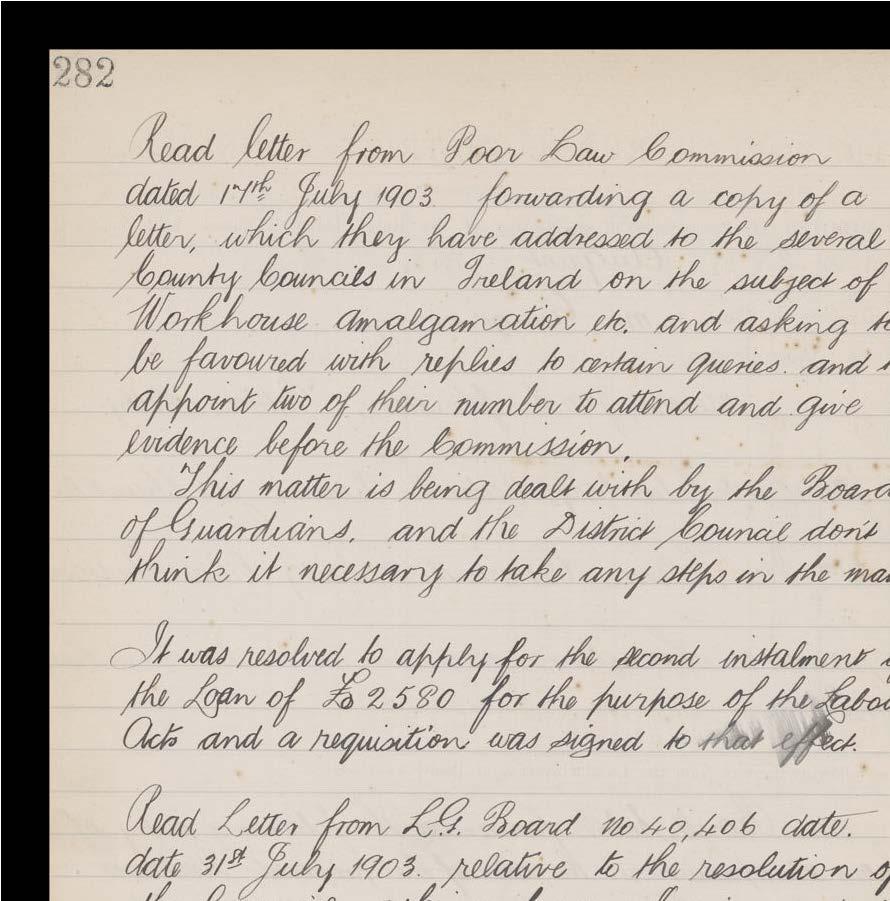 282
Read letter from Poor Law Commission
dated 17th July 1903. forwarding a copy of a
letter, which they have addressed to the several
County Councils in Ireland on the subject of
Workhouse amalgamation etc. and asking to
be favoured with replies to certain queries. and
appoint two of their number to attend and give
evidence before the Commission.
This matter is being dealt with by the Board
of Guardians. and the District Council don't
think it necessary to take any steps in the
It was resolved to apply for the second instalment
the Loan of £2580 for the purpose of the
Acts and a requisition was signed to that effect.
Read Letter from L.G. Board no 40,406 date.
date 31st July 1903. relative to the resolution of